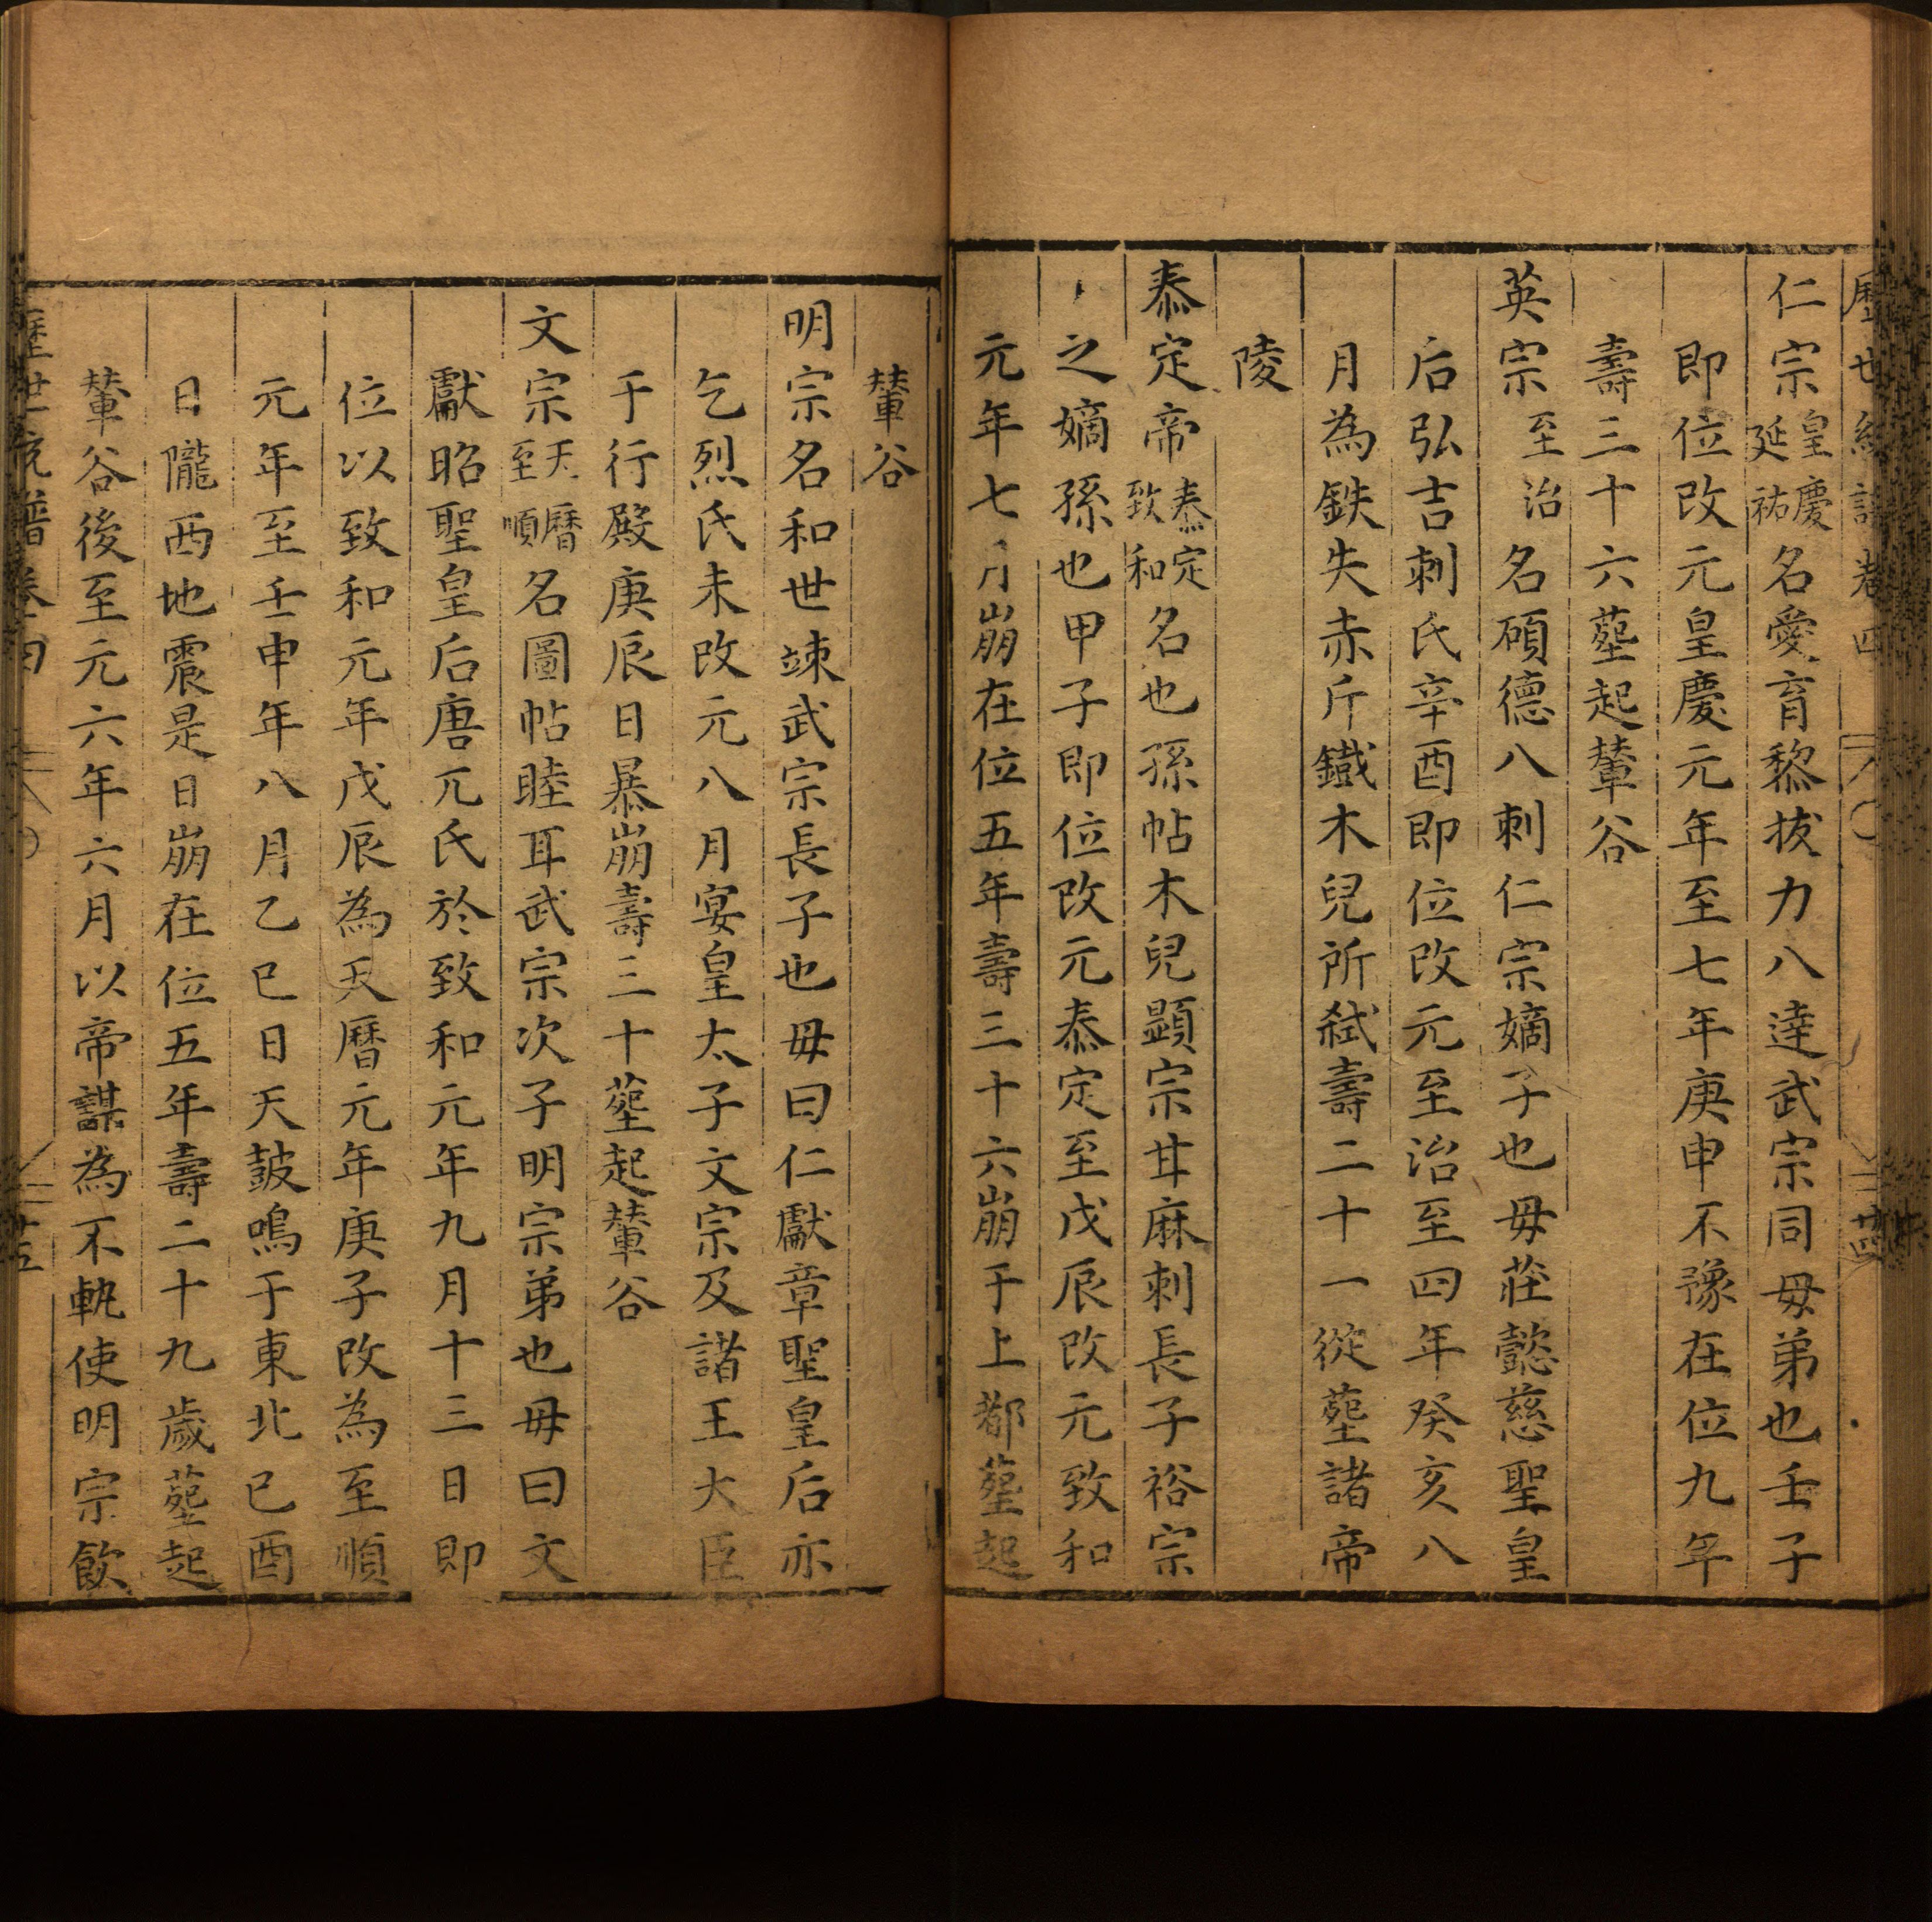 歷世統譜卷四
仁宗皇慶延祐名愛育黎拔力八達武宗同母弟也壬子
即位改元皇慶元年至七年庚申不豫在位九年
壽三十六塟起輦谷
英宗至治名碩德八剌仁宗嫡子也毋莊懿慈聖皇
后弘吉剌氏辛酉即位改元至治至四年癸亥八
月為鉄失赤斤鐵木兒所弑壽二十一從塟諸帝
陵
泰定帝泰定致和名也孫帖木兒顯宗甘麻剌長子裕宗
之嫡孫也甲子即位改元泰定至戊辰改元致和
元年七月崩在位五年壽三十六崩于上都塟起
輦谷
明宗名和世㻋武宗長子也毋曰仁獻章聖皇后亦
乞烈氏未改元八月宴皇太子文宗及諸王大臣
于行殿庚辰日暴崩壽三十塟起輦谷
文宗天曆至順名圖帖睦耳武宗次子明宗弟也毋曰文
獻昭聖皇后唐兀氏於致和元年九月十三日即
位以致和元年戊辰為天曆元年庚子改為至順
元年至壬申年八月乙巳日天鼓鳴于東北己酉
日隴西地震是日崩在位五年壽二十九歲塟起
輦谷後至元六年六月以帝謀為不軌使明宗飲
歷世統譜卷四 五